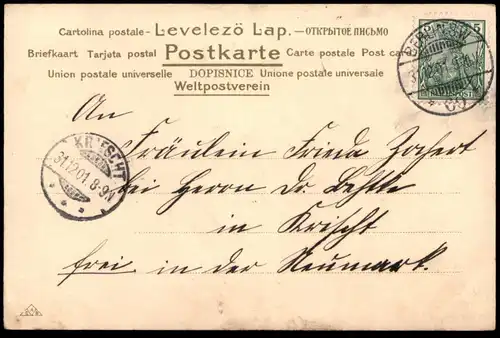 Cartolina postale - Levelező Lap. - ОТКРЫТОЕ ПИСЬМО
Briefkaart Tarjeta postal Postkarte Carte postale Post card
Union postale universelle DOPISNICE Unione postale universale
Weltpostverein
5
BERLIN S.W.
31.12.01
KRIESCHT
31.12.01. 8-9N
An
Fräulein Frieda
bei Herrn Dr.
in Krischt
frei in der Neumark.